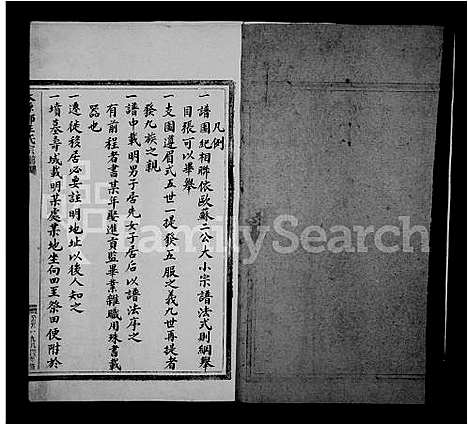 凡例
一譜圖紀相聯依歐蘇二公大小宗譜法式則綱舉
目張可以畢舉
一支圖遵眉式五世一提發五服之義九世再提者
發九族之親
一譜中載明男子居先女子居后以譜法序之
有前程者書某年娶進貢監畢業雜職用硃書載
名也
一遷徙移居必要註明地址以後人知之
一墳墓壽城載明某處某地坐向四至祭田便附於
FamilySearch